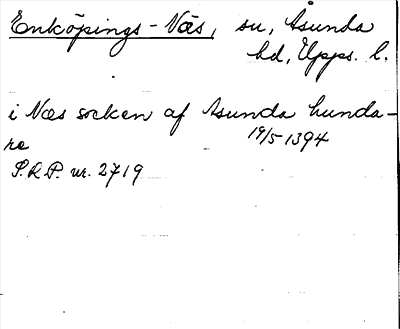 Enköpings-Näs, sn, Åsunda
hd, Upps. l.
i Næs socken af Asunda hunda-
re 19/5 1394
S.R.P. nr. 2719